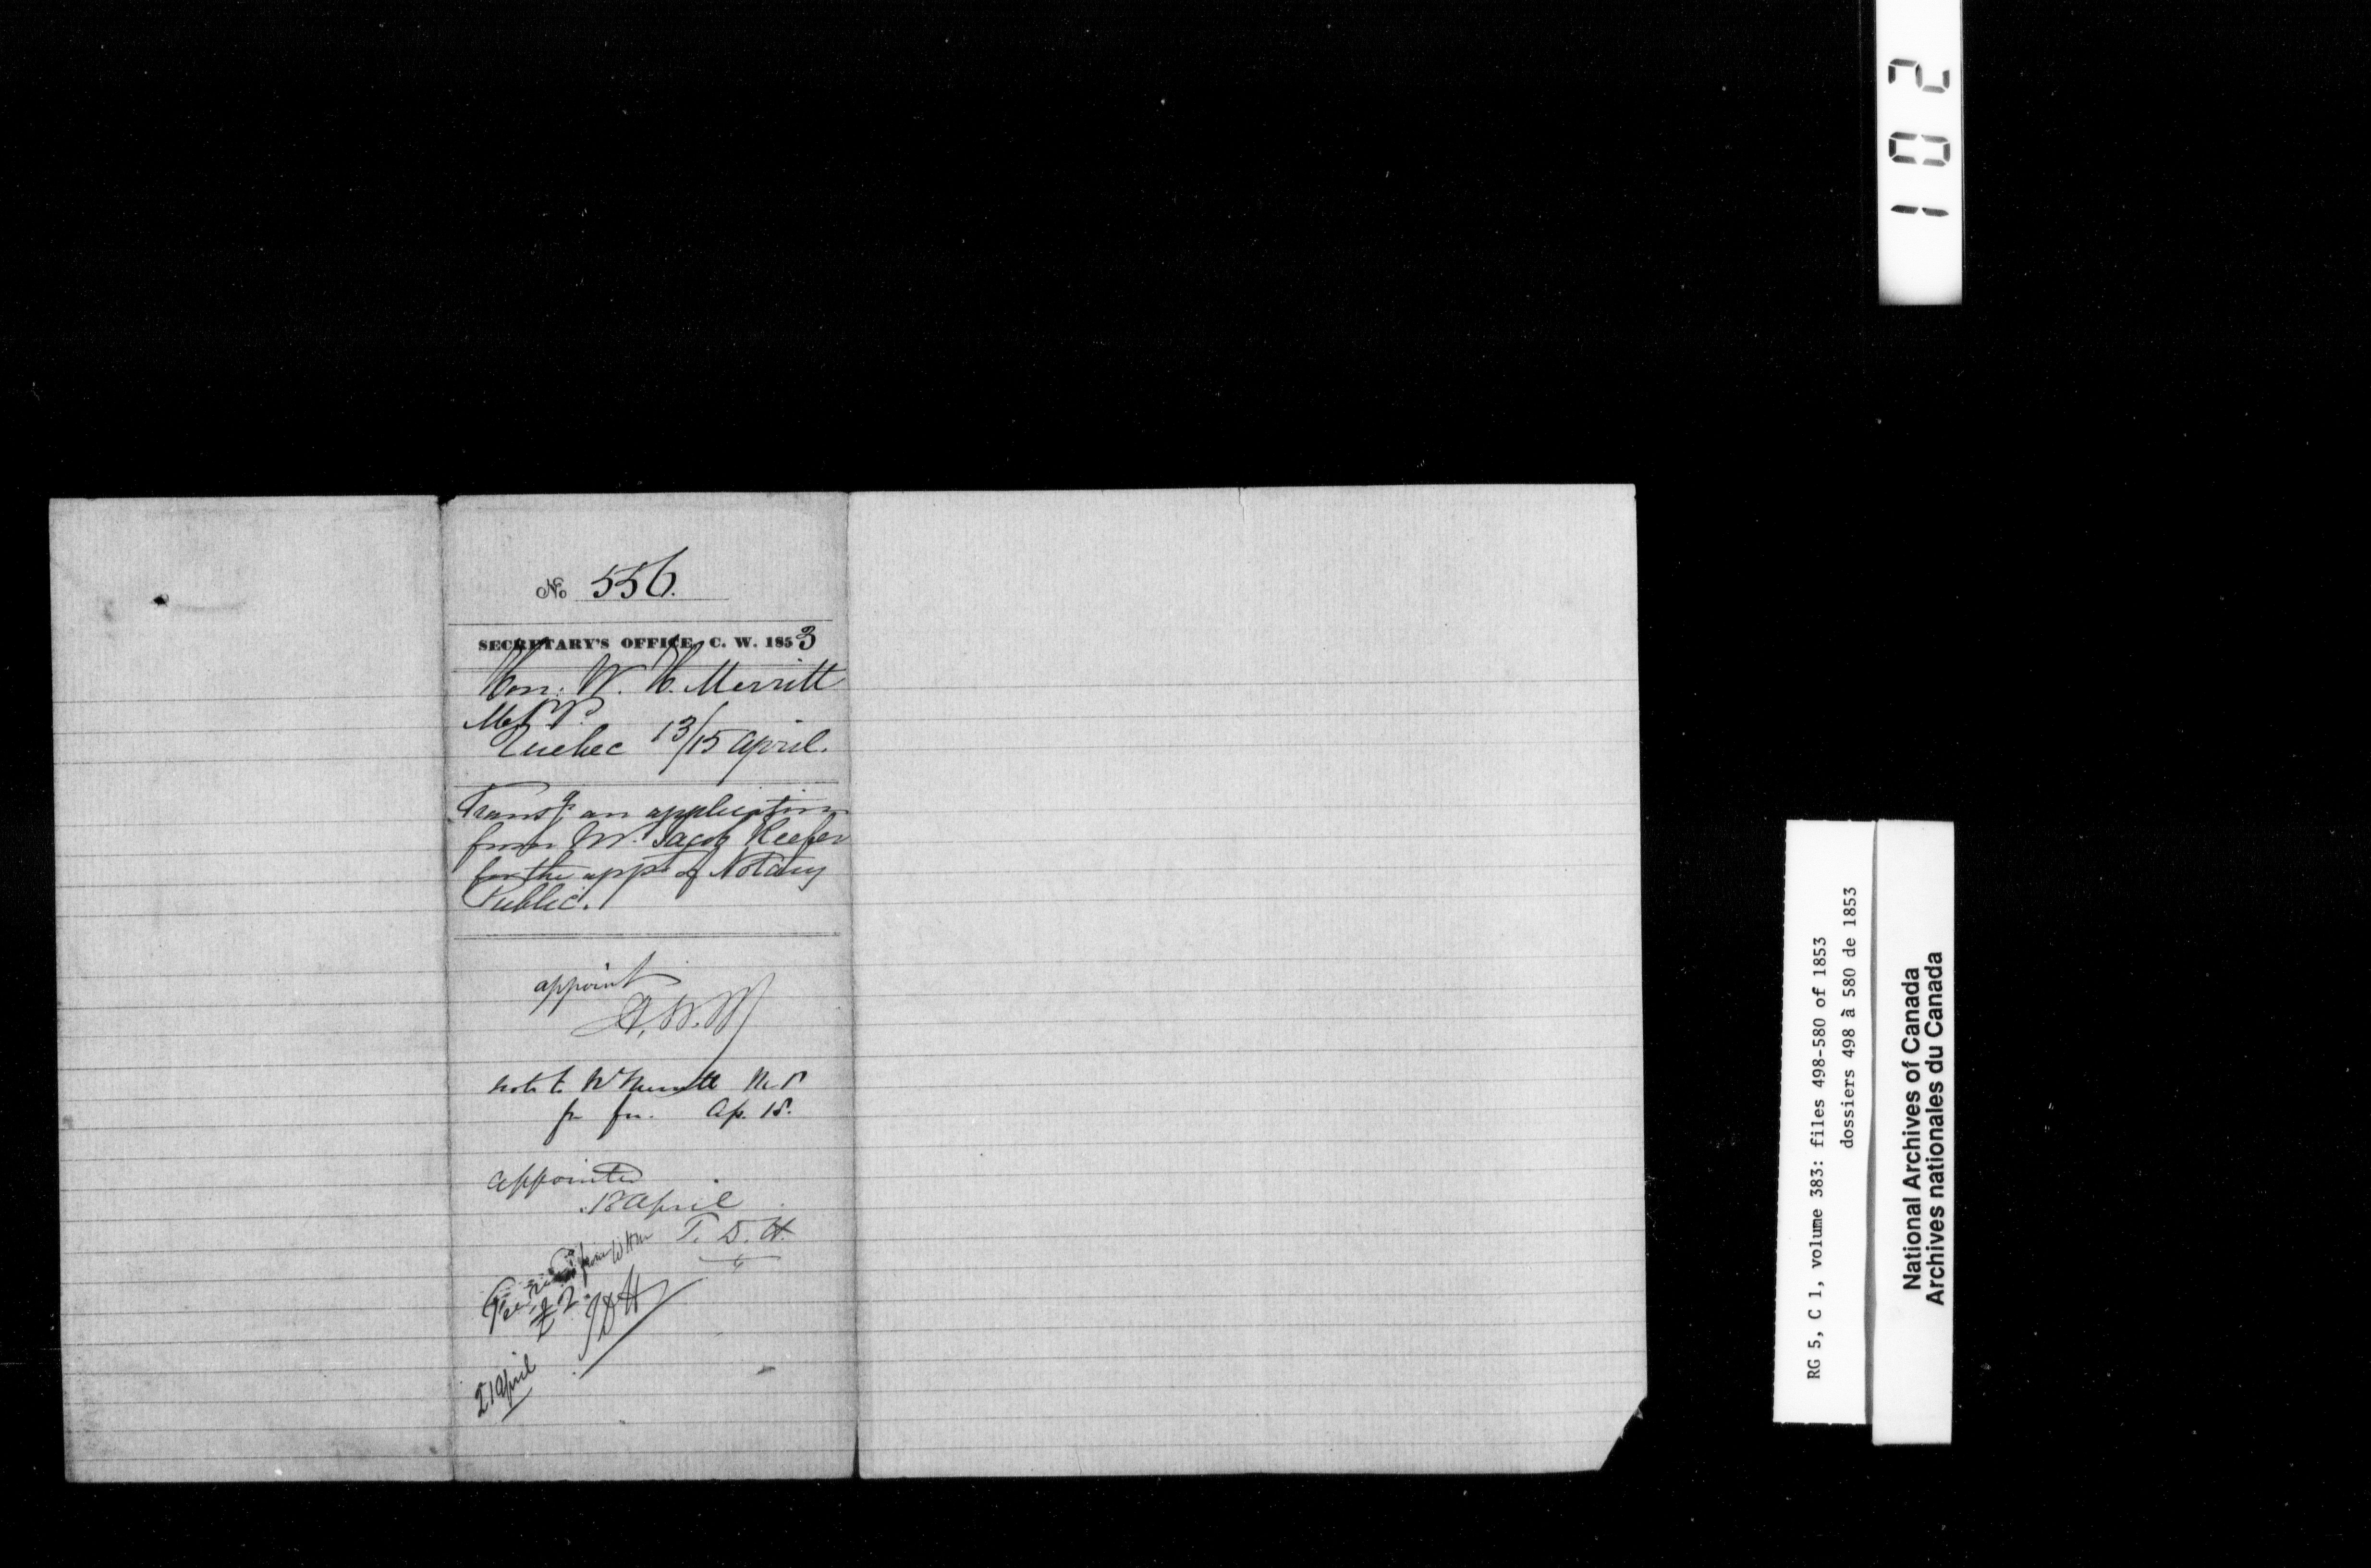 No 556.
SECRETARY'S OFFICE, C. W. 1853
Hon. W. H. Merritt
M.P.P.
Quebec 13/15 April.
Transg. an application
from Mr. Jacob Keefer
for the appt. of Notary
Public.
appoint
A.N.M
note to W Merritt M.P
for fee. Ap. 18.
appointed
18 April
T. D. H.
Fee recd from WHM
£2.
TDH
21 April
102
RG 5, C 1, volume 383: files 498-580 of 1853
dossiers 498 à 580 de 1853
National Archives of Canada
Archives nationales du Canada